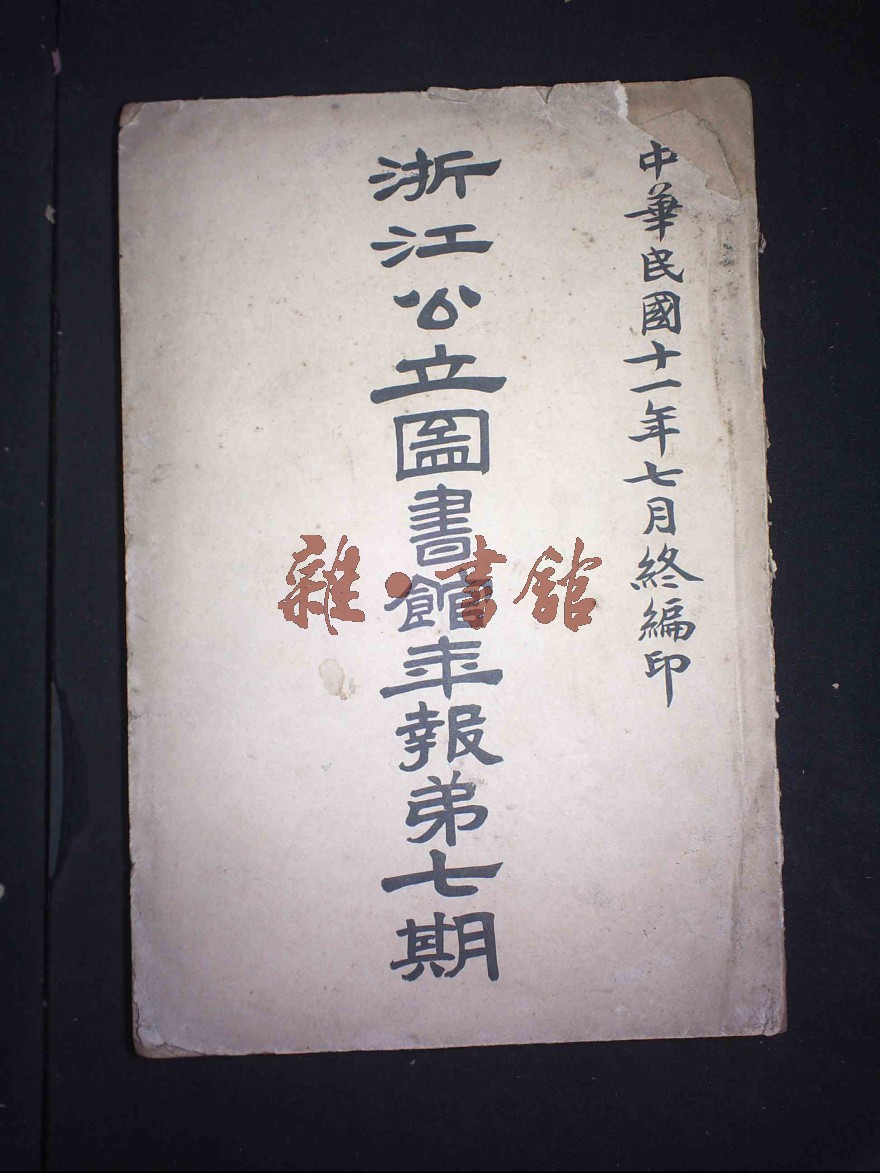 中華民國十一年七月終編印
浙江公立圖書館年報弟七期
雜·書館